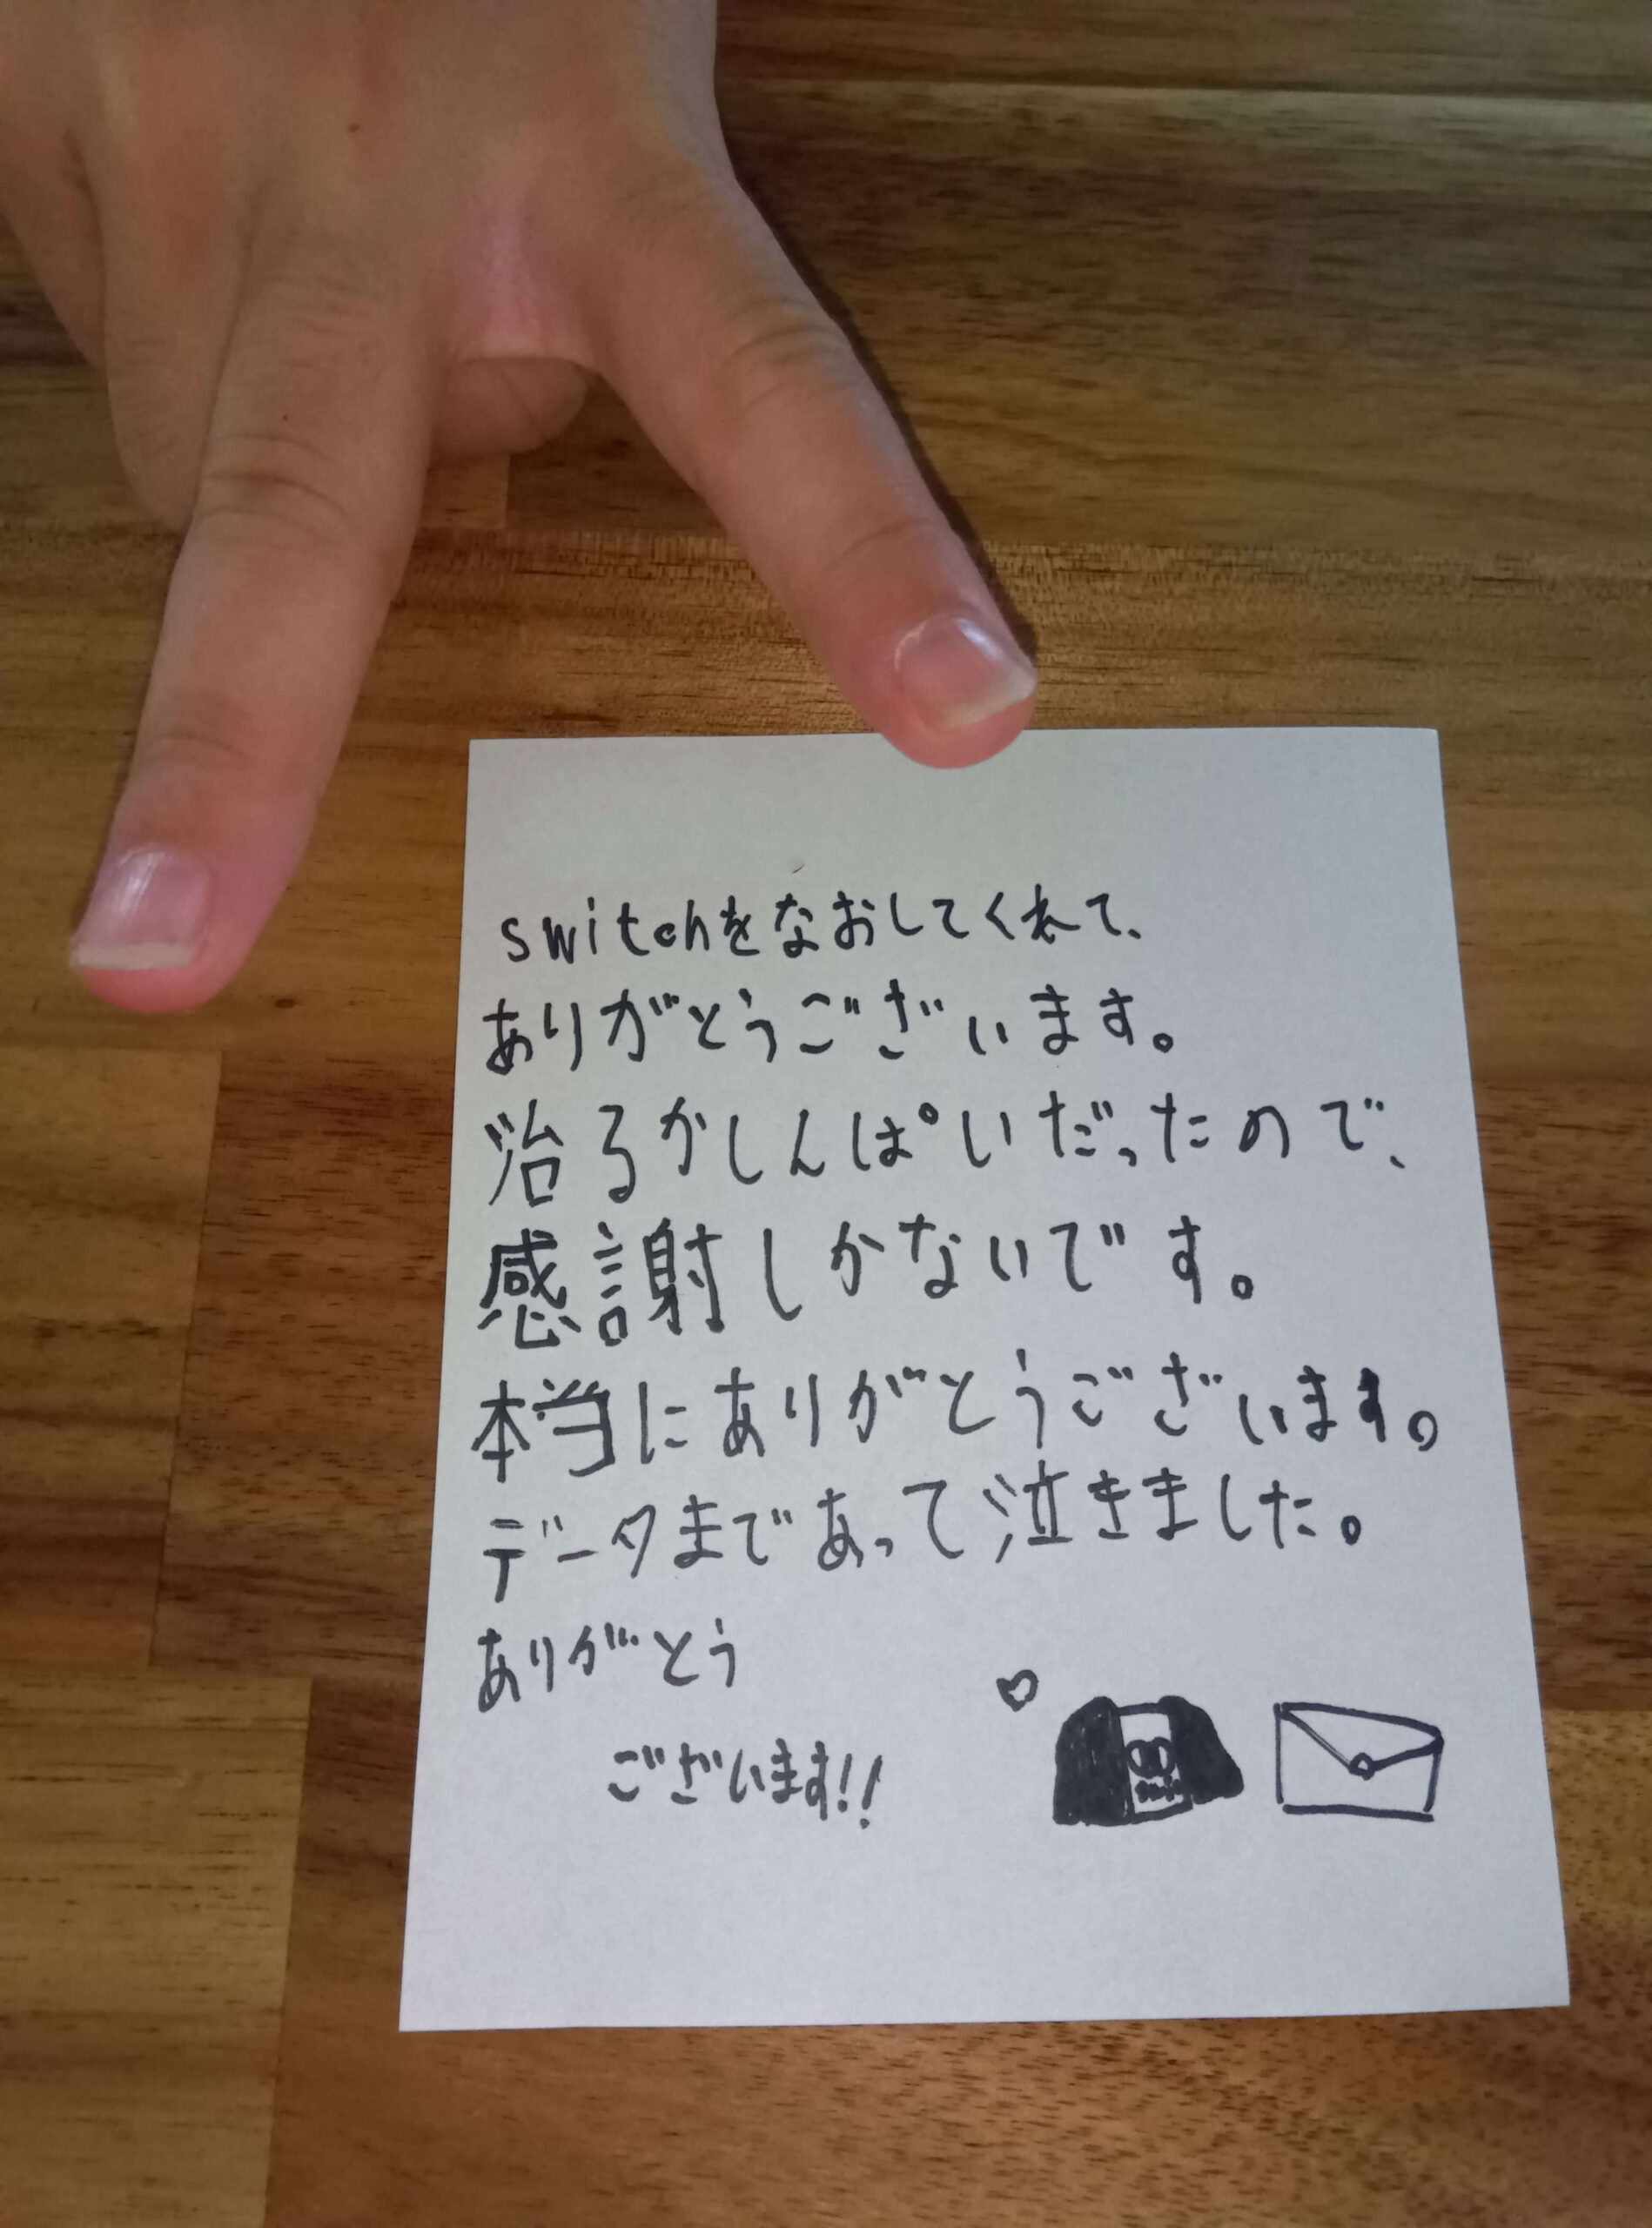 switchをなおしてくれて、
ありがとうございます。
治るかしんぱいだったので、
感謝しかないです。
本当にありがとうございます。
データまであって泣きました。
ありがとう
ございます!!